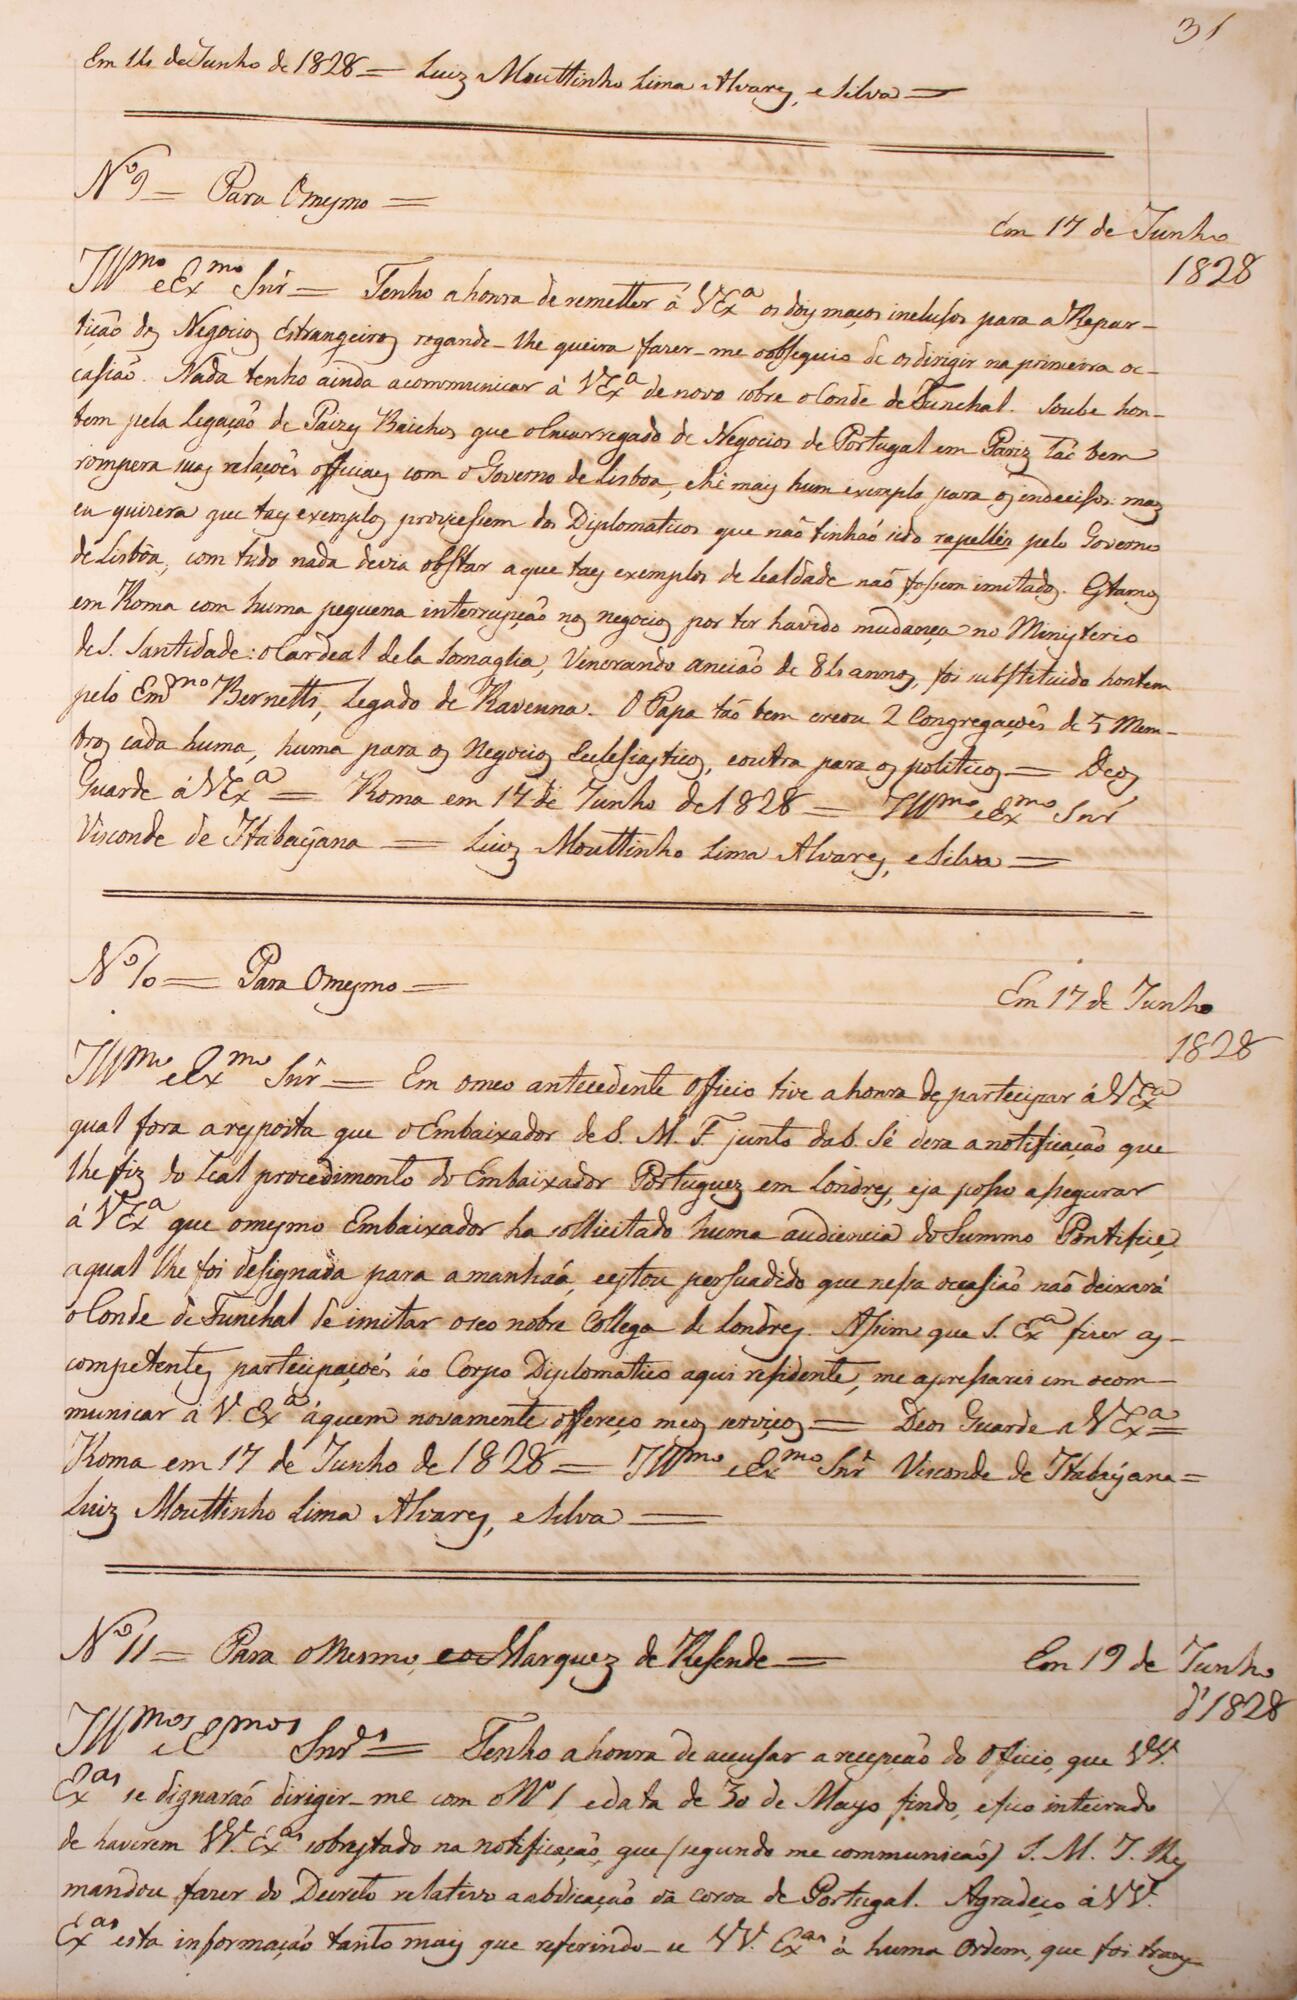 31
Em 14 de Junho de 1828 = Luiz Mouttinho Lima Alvares, e Silva =
Nº 9 = Para O mesmo =
Em 17 de Junho
1828
Illmo e Exmo Snr = Tenho a honra de remetter á V Exa os dois maços inclusos para a Repar-
tição dos Negocios Estrangeiros rogando-lhe queira fazer-me o obsequio de os dirigir na primeira oc-
casião. Nada tenho ainda a communicar á V Exa de novo sobre o Conde de Funchal. Soube hon-
tem pela Legação de Paizes Baichos que o Encarregado de Negocios de Portugal em Pariz tão bem
rompera suas relações officiaes com o Governo de Lisboa, e he mais hum exemplo para os indecisos: mas
eu quizera que taes exemplos proviessem dos Diplomaticos que não tinhaõ sido rapellés pelo Governo
de Lisbôa, com tudo nada devia obstar a que taes exemplos de Lealdade naõ fossem imitados. Estamos
em Roma com huma pequena interrupção nos negocios por ter havido mudança no Ministerio
de S. Santidade: o Cardeal de la Somaglia, Venerando ancião de 84 annos, foi substituido hontem
pelo Emmo Bernetti, Legado de Ravenna. O Papa tão bem creou 2 Congregações de 5 Mem-
bros cada huma, huma para os Negocios Ecclesiasticos, e outra para os politicos = Deos
Guarde á V Exa = Roma em 17 de Junho de 1828 = Illmo e Exmo Snr
Visconde de Itabayana = Luiz Mouttinho Lima Alvares, e Silva =
Nº 10 = Para O mesmo =
Em 17 de Junho
1828
Illmo e Exmo Snr = Em o meo antecedente Officio tive a honra de partecipar á V Exa
qual fora a resposta que o Embaixador de S. M. F. junto da S. Sé dera a notificação que
lhe fiz do Leal procedimento do Embaixador Portuguez em Londres, e ja posso assegurar
á V Exa que o mesmo Embaixador ha sollicitado huma audiencia do Summo Pontifice,
a qual lhe foi designada para a manhaã, e estou persuadido que nessa occasião não deixará
o Conde de Funchal de imitar o seo nobre Collega de Londres. Assim que S. Exa fizer as
competentes partecipaçoẽs ao Corpo Diplomatico aqui residente, me apressarei em o com-
municar á V. Exa á quem novamente offereço meos serviços = Deos Guarde a V Exa =
Roma em 17 de Junho de 1828 = Illmo e Exmo Snr Visconde de Itabayana =
Luiz Mouttinho Lima Alvares, e Silva =
Nº 11 = Para o Mesmo, e o Marquez de Resende =
Em 19 de Junho
d' 1828
Illmos e Emos Snres = Tenho a honra de accusar a recepção do Officio, que VV.
Exas se dignaraõ dirigir-me com o Nº 1 e data de 30 de Mayo findo, e fico inteirado
de haverem VV. Exas sobrestado na notificação, que (segundo me communicaõ) S. M. I. lhes
mandou fazer do Decreto relativo a abdicação da Coroa de Portugal. Agradeço á VV.
Exas esta informação tanto mais que referindo-se VV. Exas á huma Ordem, que foi trans-